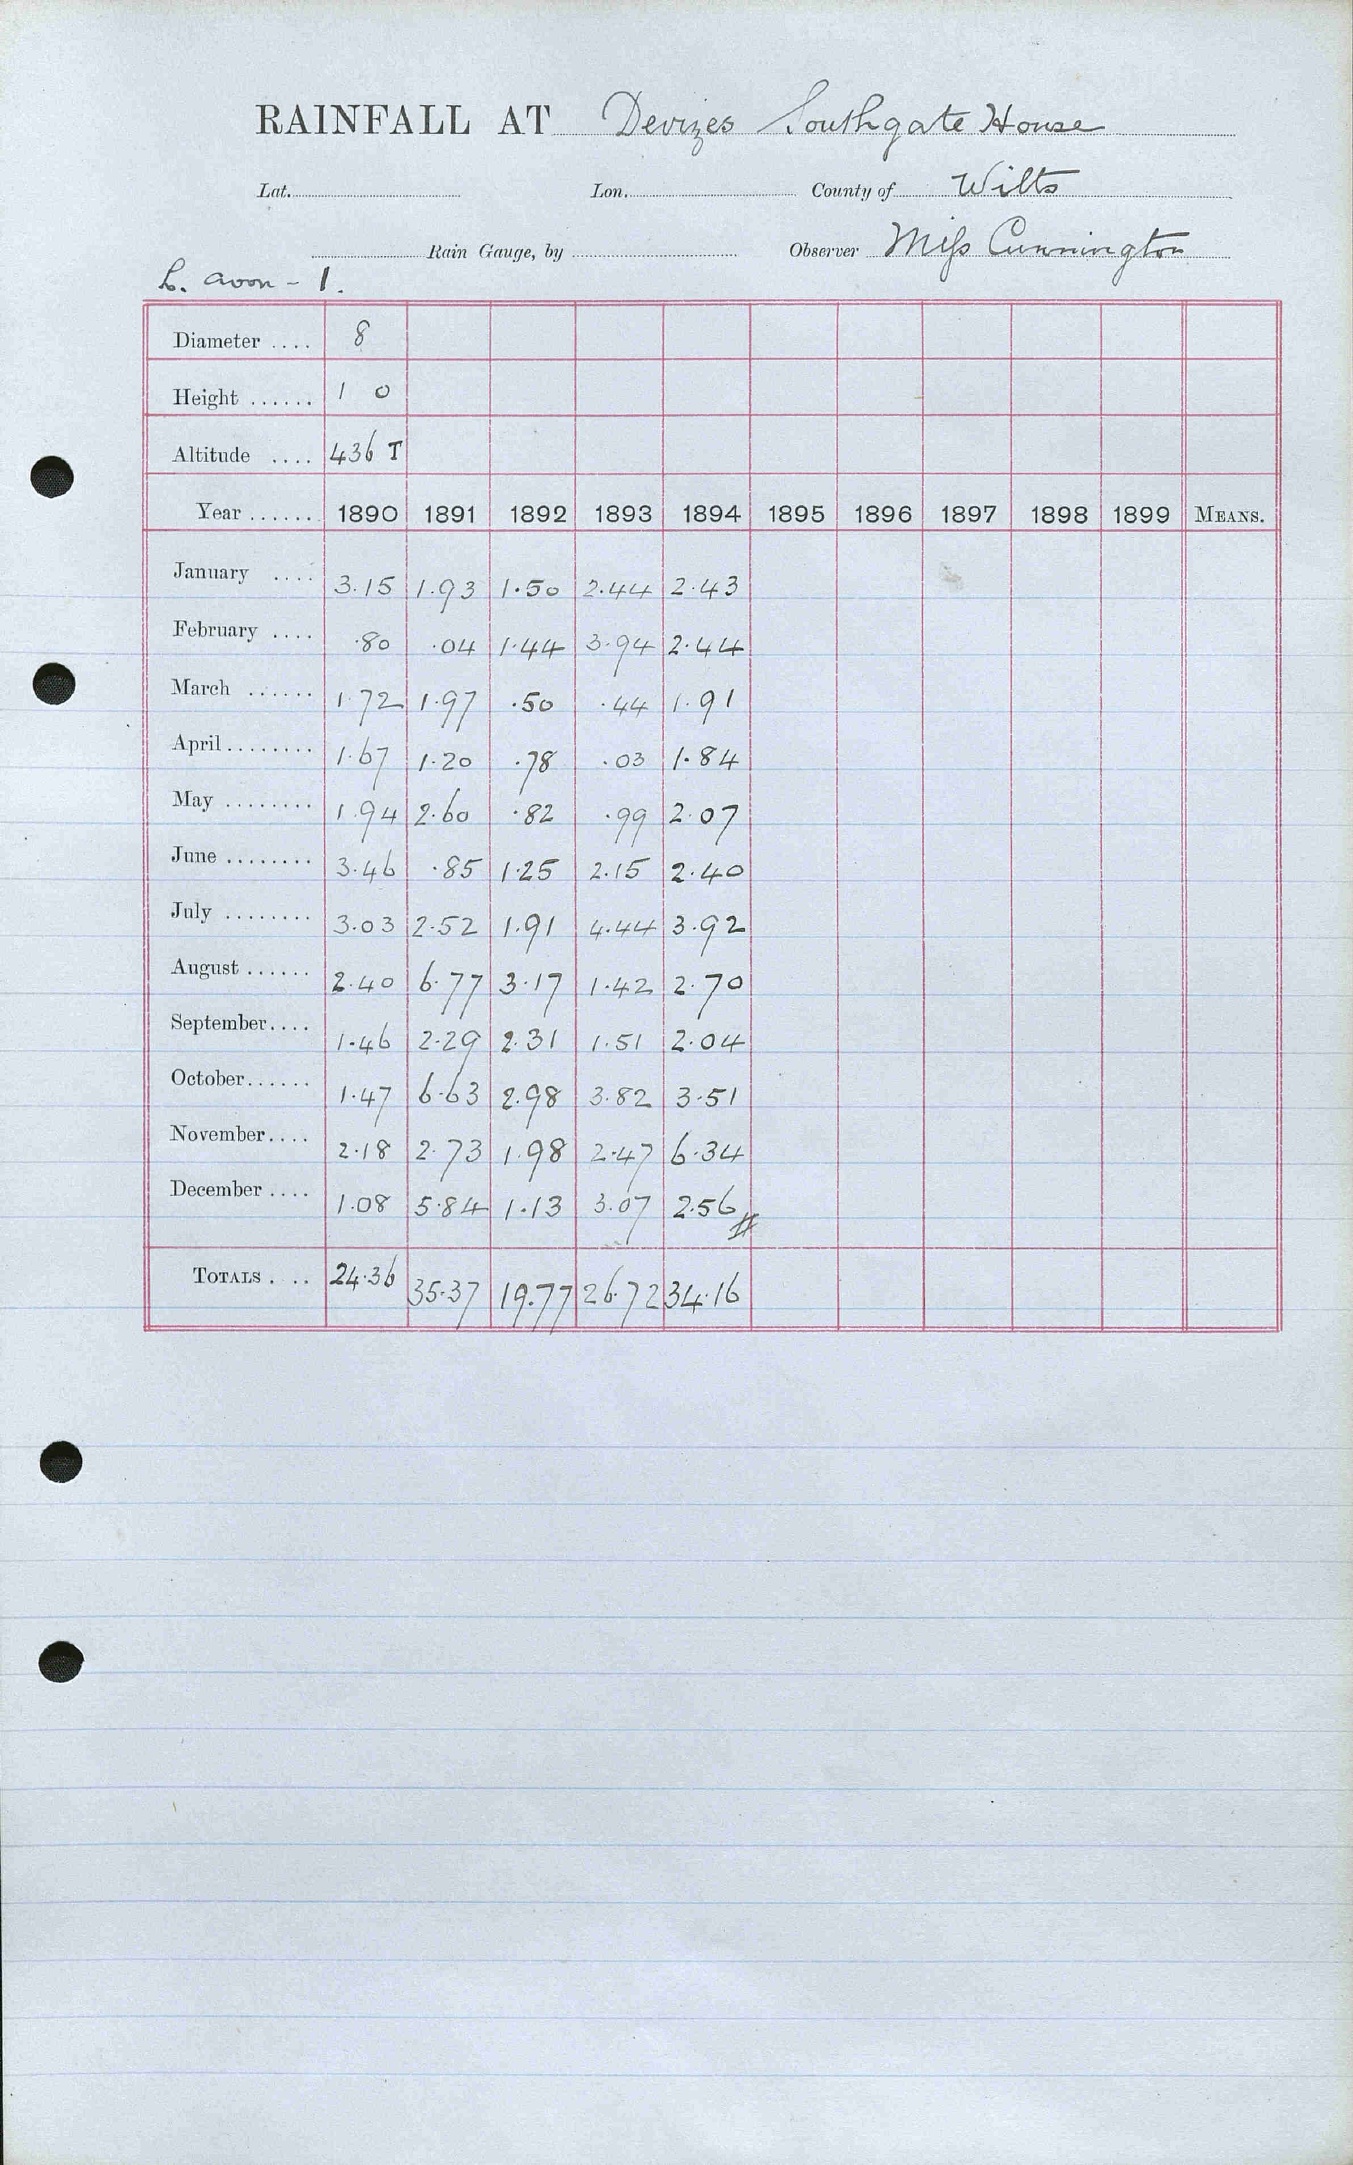 RAINFALL AT Devizes Southgate House
Lat. Lon. County of Wilts
Rain Gauge, by Observer Miss Cunnington
L. Avon - 1.
Diameter .... 8
Height ...... 1 0
Altitude .... 436 T
Year ...... 1890 1891 1892 1893 1894 1895 1896 1897 1898 1899 MEANS.
January .... 3.15 1.93 1.50 2.44 2.43
February .... .80 .04 1.44 3.94 2.44
March ...... 1.72 1.97 .50 .44 1.91
April ........ 1.67 1.20 .78 .03 1.84
May ........ 1.94 2.60 .82 .99 2.07
June ........ 3.46 .85 1.25 2.15 2.40
July ........ 3.03 2.52 1.91 4.44 3.92
August ...... 2.40 6.77 3.17 1.42 2.70
September.... 1.46 2.29 2.31 1.51 2.04
October...... 1.47 6.63 2.98 3.82 3.51
November.... 2.18 2.73 1.98 2.47 6.34
December .... 1.08 5.84 1.13 3.07 2.56 #
TOTALS . .. 24.36 35.37 19.77 26.72 34.16